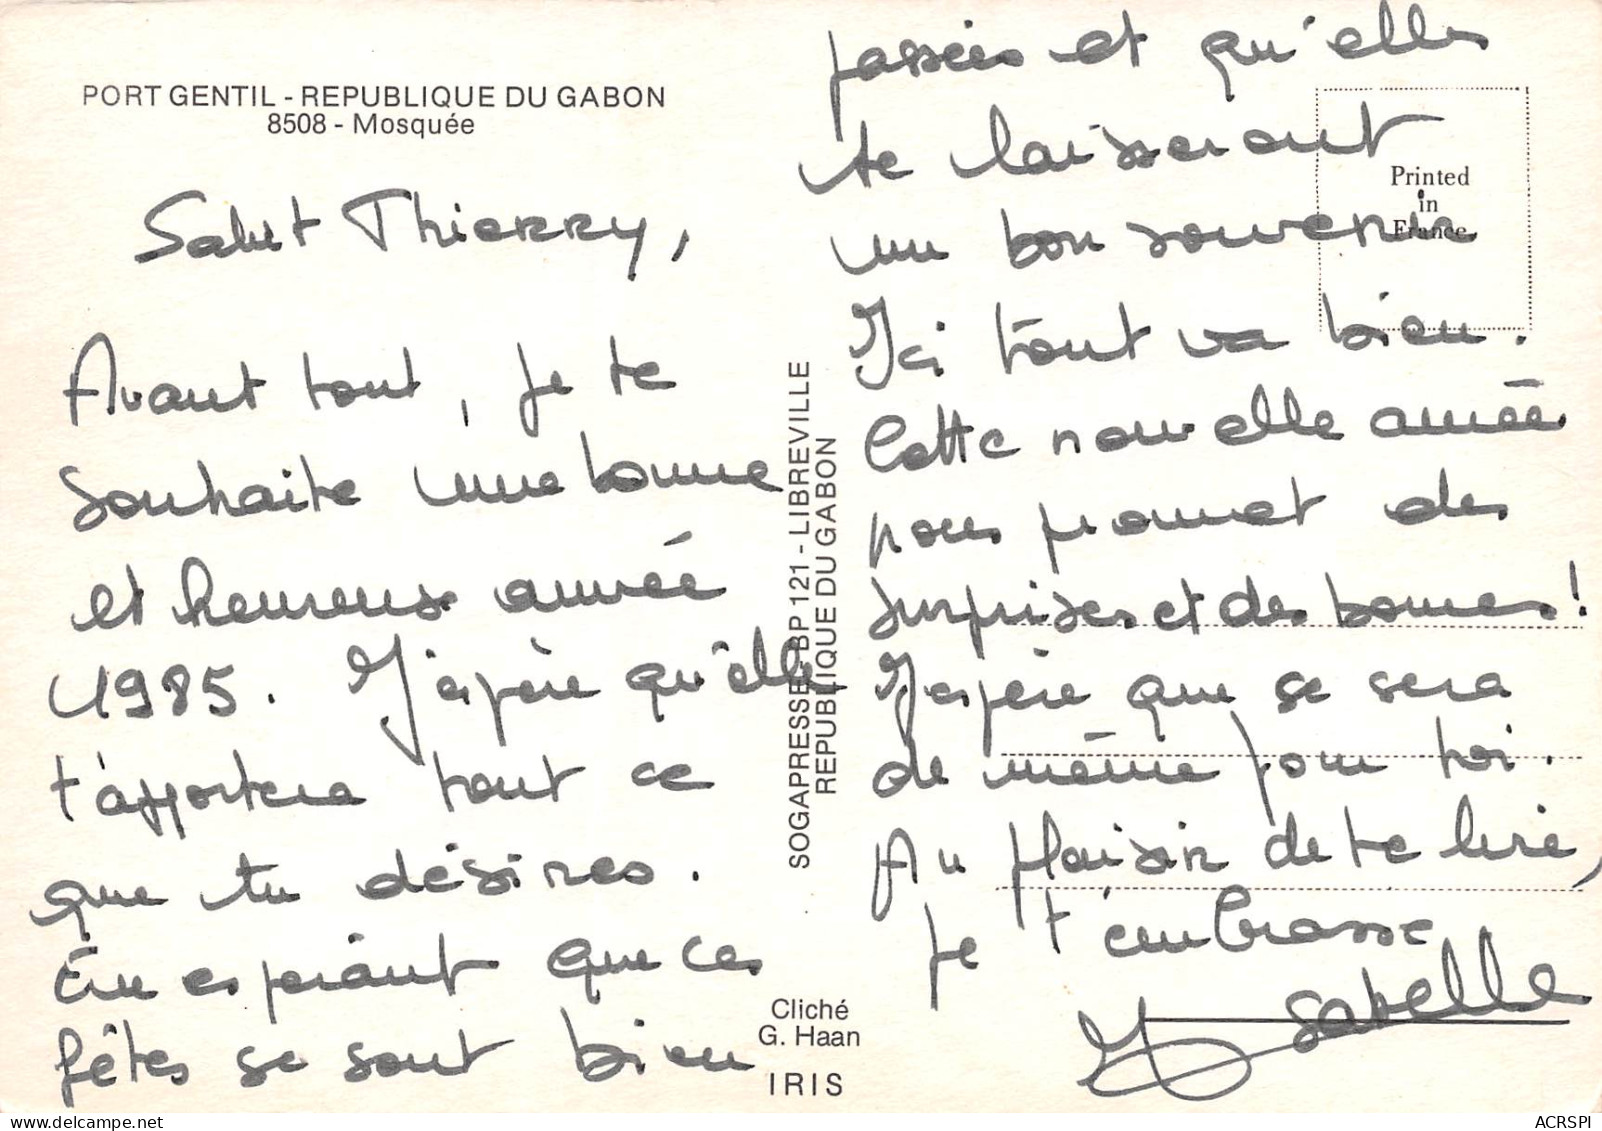 PORT GENTIL - REPUBLIQUE DU GABON
8508 - Mosquée
Salut Thierry,
Avant tout, je te
souhaite une bonne
et heureuse année
1985. J'espère qu'elle
t'apportera tout ce
que tu désires.
En espérant que ces
fêtes se sont bien
passées et qu'elles
te laisseront
un bon souvenir
Ici tout va bien.
Cette nouvelle année
nous promet des
surprises et des bonnes!
J'espère que se sera
de même pour toi.
Au plaisir de te lire,
je t'embrasse
Isabelle
Printed
in
France
SOGAPRESSE - BP 121 - LIBREVILLE
REPUBLIQUE DU GABON
Cliché
G. Haan
IRIS
delcampe.net
ACRSPI